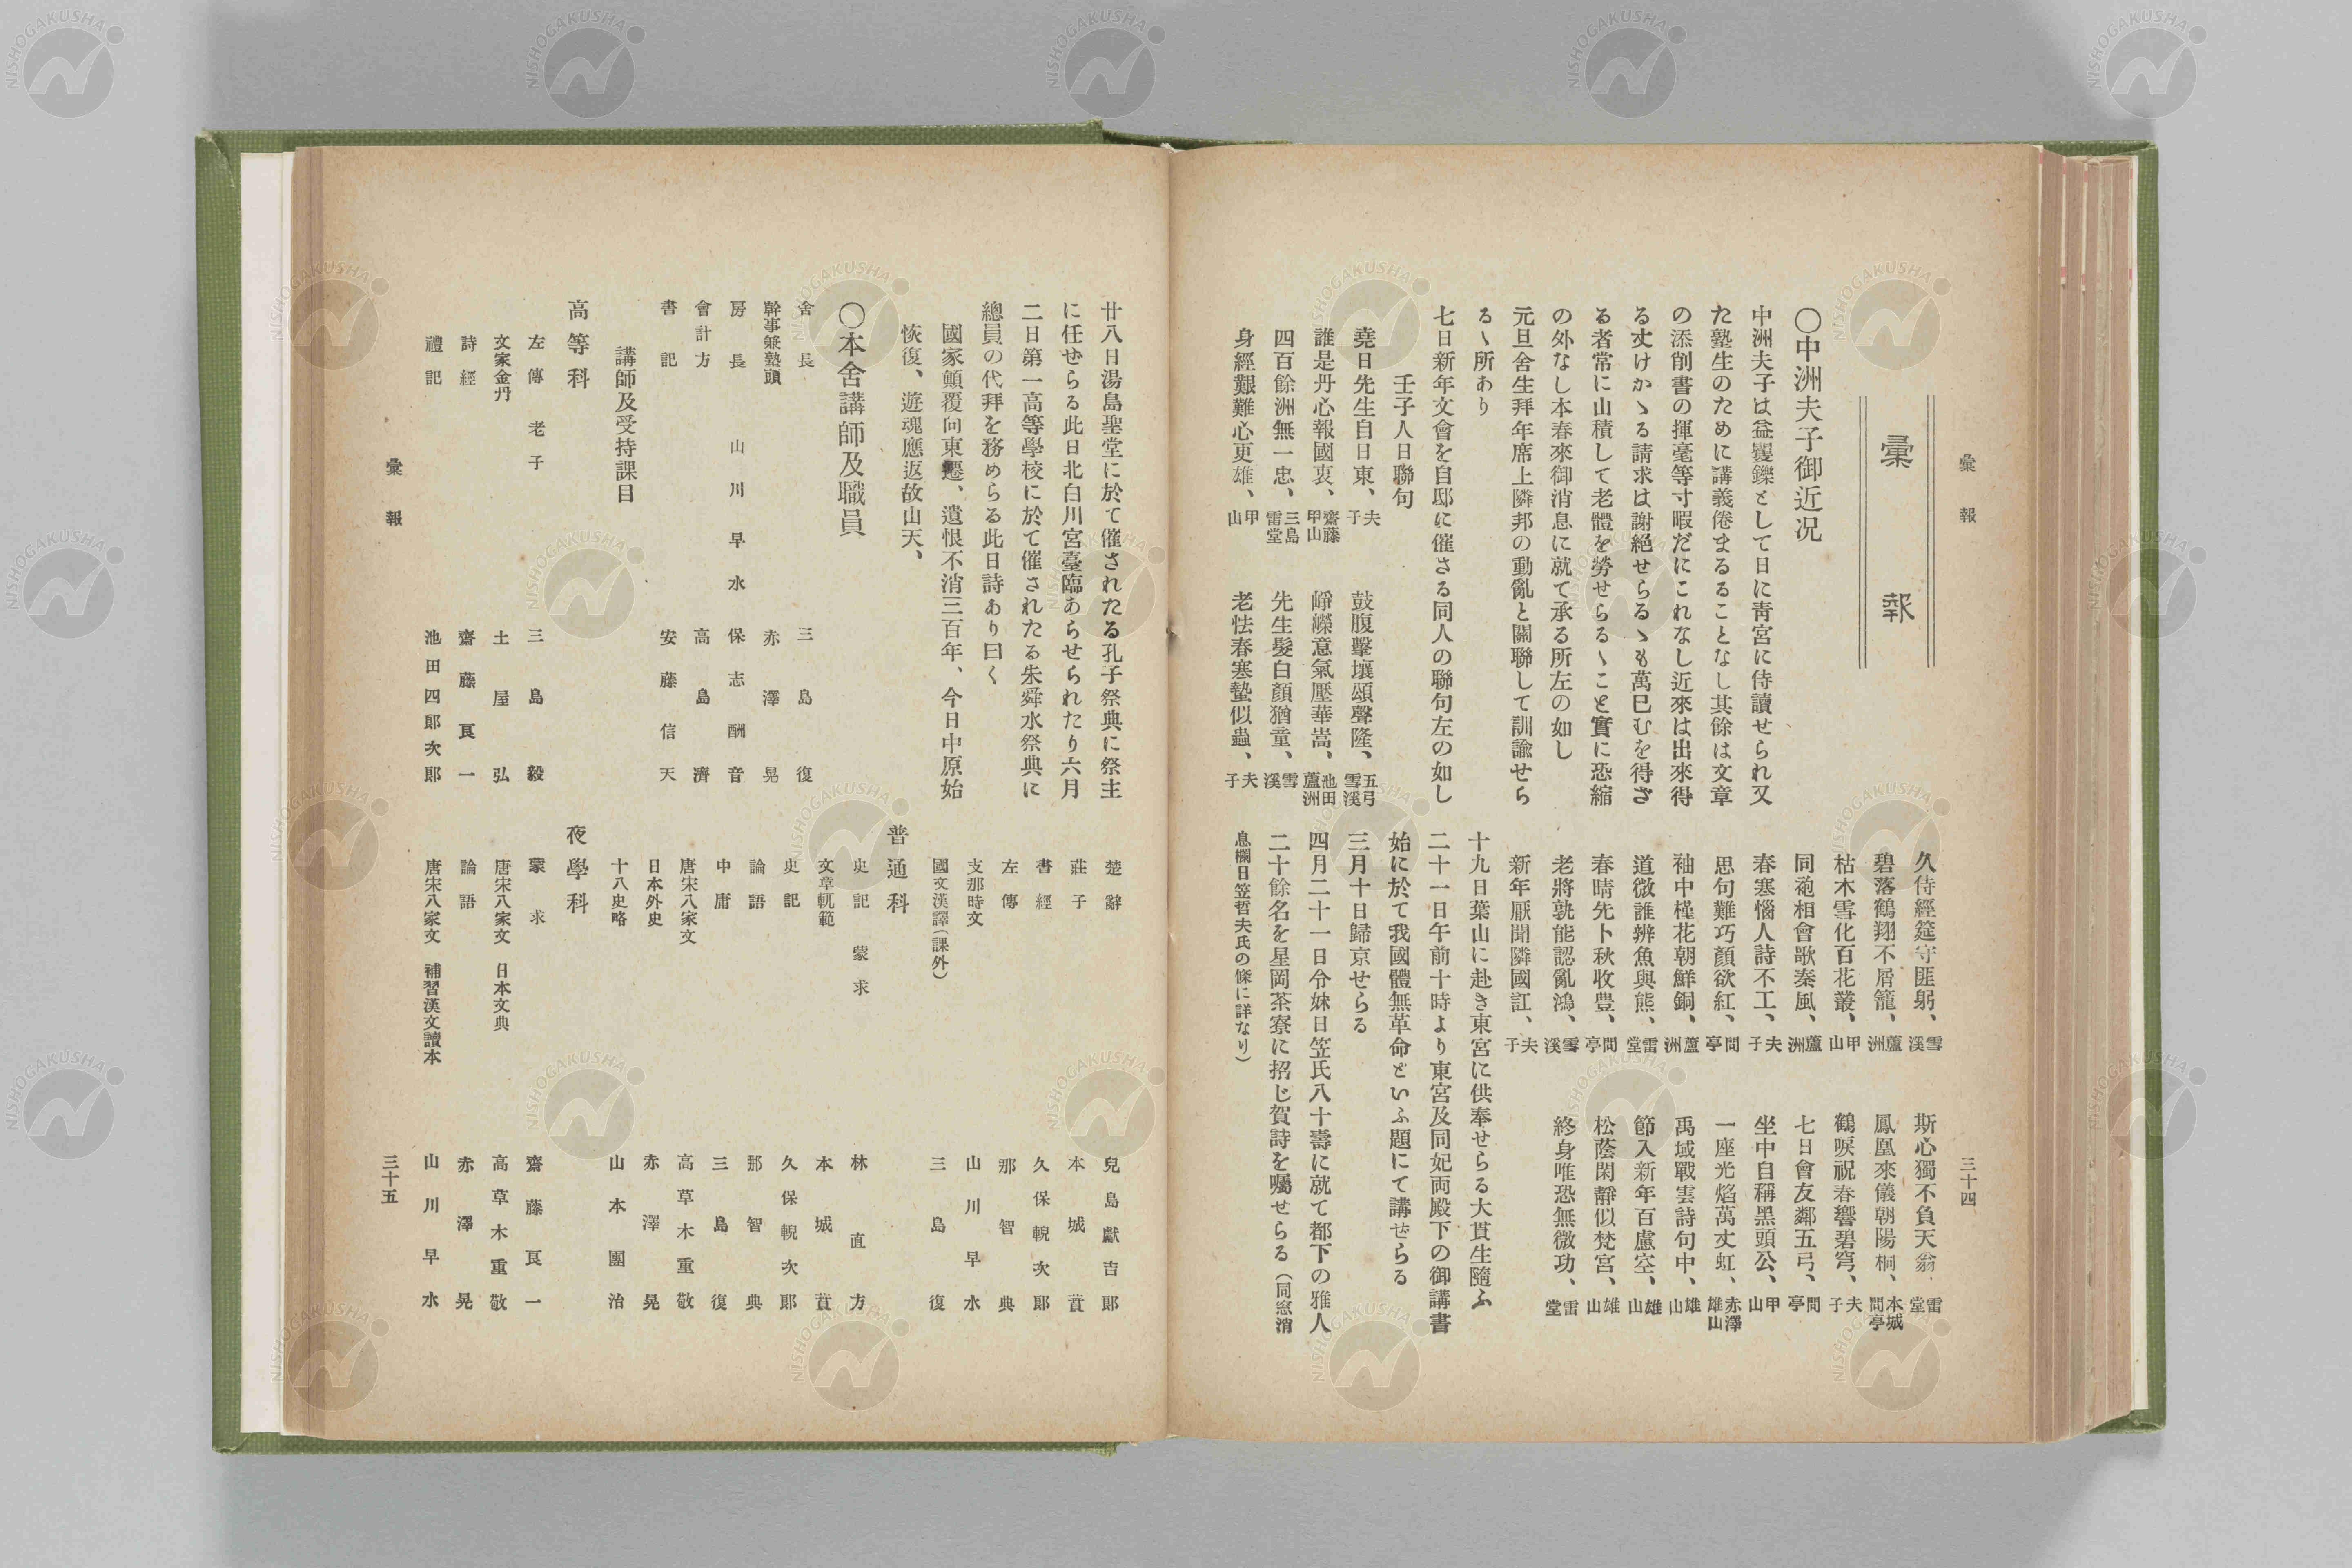 彙報
三十四
彙報
〇中洲夫子御近況
中洲夫子は益矍鑠として日に靑宮に侍讀せられ又
た塾生のために講義倦まるることなし其餘は文章
の添削書の揮毫等寸暇だにこれなし近來は出來得
る丈けかゝる請求は謝絶せらるゝも萬已むを得ざ
る者常に山積して老體を勞せらるゝこと實に恐縮
の外なし本春來御消息に就て承る所左の如し
元旦舍生拜年席上隣邦の動亂と關聯して訓諭せら
るゝ所あり
七日新年文會を自邸に催さる同人の聯句左の如し
壬子人日聯句
堯日先生自日東、夫子 鼓腹擊壤頌聲隆、五弓雪溪
誰是丹心報國衷、齋藤甲山 崢嶸意氣壓華嵩、池田蘆洲
四百餘洲無一忠、三島雷堂 先生髮白顏猶童、雪溪
身經艱難心更雄、甲山 老怯春寒蟄似蟲、夫子
久侍經筵守匪躬、雪溪 斯心獨不負天翁、雷堂
碧落鶴翔不屑籠、蘆洲 鳳凰來儀朝陽桐、本城問亭
枯木雪化百花叢、甲山 鶴唳祝春響碧穹、夫子
同袍相會歌秦風、蘆洲 七日會友鄰五弓、問亭
春寒惱人詩不工、夫子 坐中自稱黑頭公、甲山
思句難巧顏欲紅、問亭 一座光焰萬丈虹、赤澤雄山
袖中槿花朝鮮銅、蘆洲 禹域戰雲詩句中、雄山
道微誰辨魚與熊、雷堂 節入新年百慮空、雄山
春晴先卜秋收豊、問亭 松蔭閑靜似梵宮、雄山
老將孰能認亂鴻、雪溪 終身唯恐無微功、雷堂
新年厭聞隣國訌、夫子
十九日葉山に赴き東宮に供奉せらる大貫生隨ふ
二十一日午前十時より東宮及同妃両殿下の御講書
始に於て我國體無革命といふ題にて講せらる
三月十日歸京せらる
四月二十一日令妹日笠氏八十壽に就て都下の雅人
二十餘名を星岡茶寮に招じ賀詩を囑せらる(同窓消
息欄日笠哲夫氏の條に詳なり)
廿八日湯島聖堂に於て催されたる孔子祭典に祭主
に任せらる此日北白川宮臺臨あらせられたり六月
二日第一高等學校に於て催されたる朱舜水祭典に
總員の代拜を務めらる此日詩あり曰く
國家顛覆向東遷、遺恨不消三百年、今日中原始
恢復、遊魂應返故山天、
〇本舍講師及職員
舍長 三島復
幹事兼塾頭 赤澤晃
房長 山川早水 保志酬音
會計方 高島濟
書記 安藤信天
講師及受持課目
高等科
左傳 老子 三島毅
文家金丹 土屋弘
詩經 齋藤良一
禮記 池田四郎次郎
楚辭 兒島獻吉郎
莊子 本城蕡
書經 久保輗次郎
左傳 那智典
支那時文 山川早水
國文漢譯(課外) 三島復
普通科
史記 蒙求 林直方
文章軌範 本城蕡
史記 久保輗次郎
論語 那智典
中庸 三島復
唐宋八家文 高草木重敬
日本外史 赤澤晃
十八史略 山本團治
夜學科
蒙求 齋藤良一
唐宋八家文 日本文典 高草木重敬
論語 赤澤晃
唐宋八家文 補習漢文讀本 山川早水
彙報
三十五
NISHOGAKUSHA